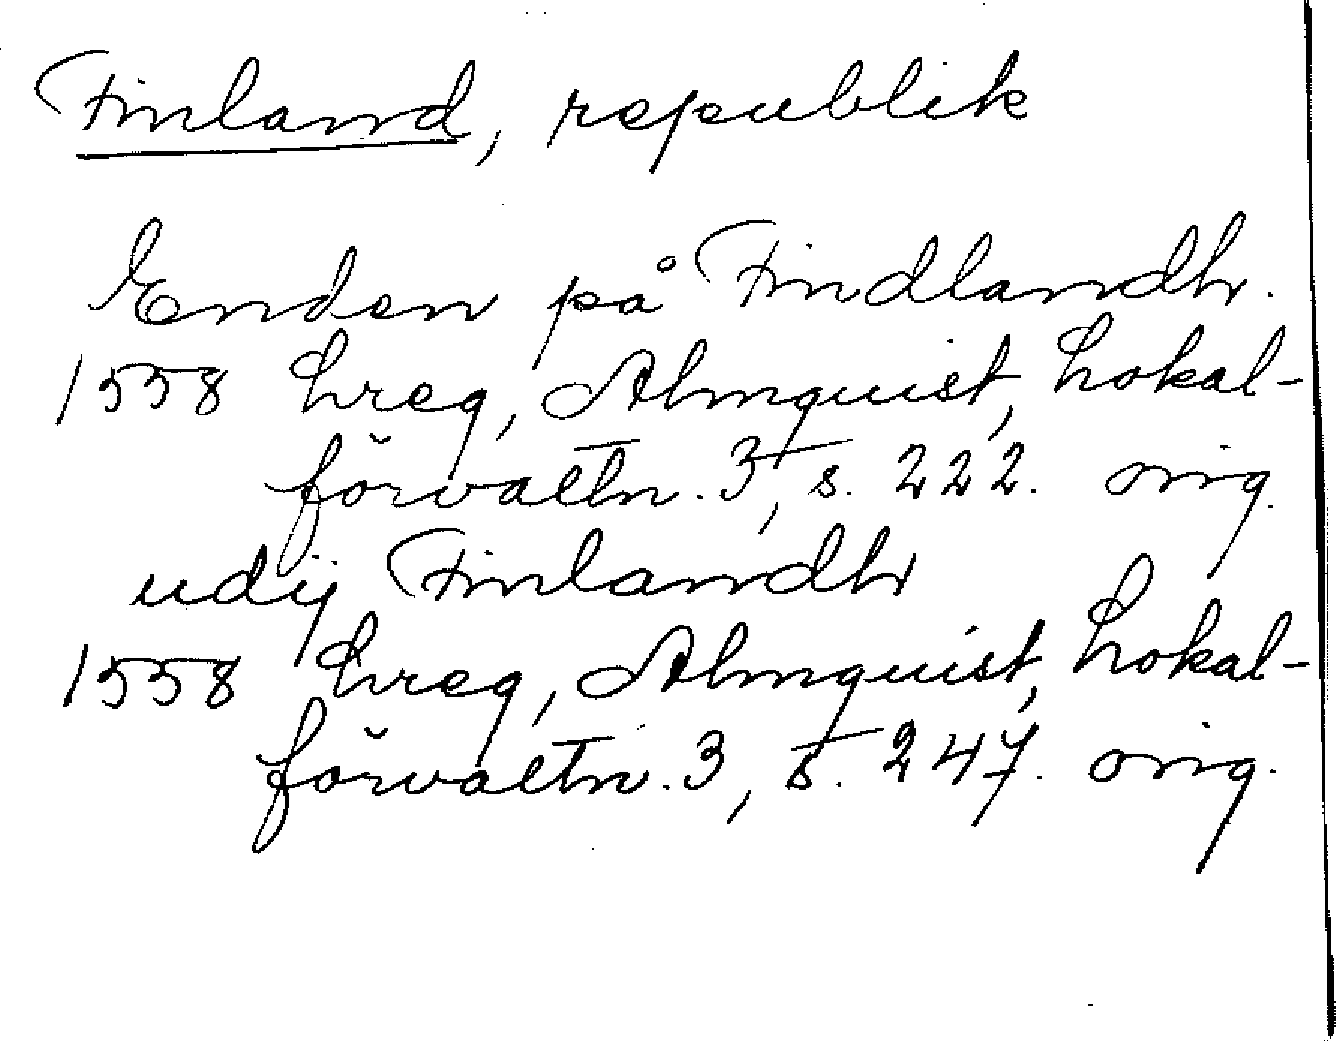 Finland, republik
Enden på Findlandh.
1558 Lreg, Almquist, Lokal-
förvaltn. 3, s. 222. orig.
udij Finlandh
1558 Lreg, Almquist, Lokal-
förvaltn. 3, s. 247. orig.